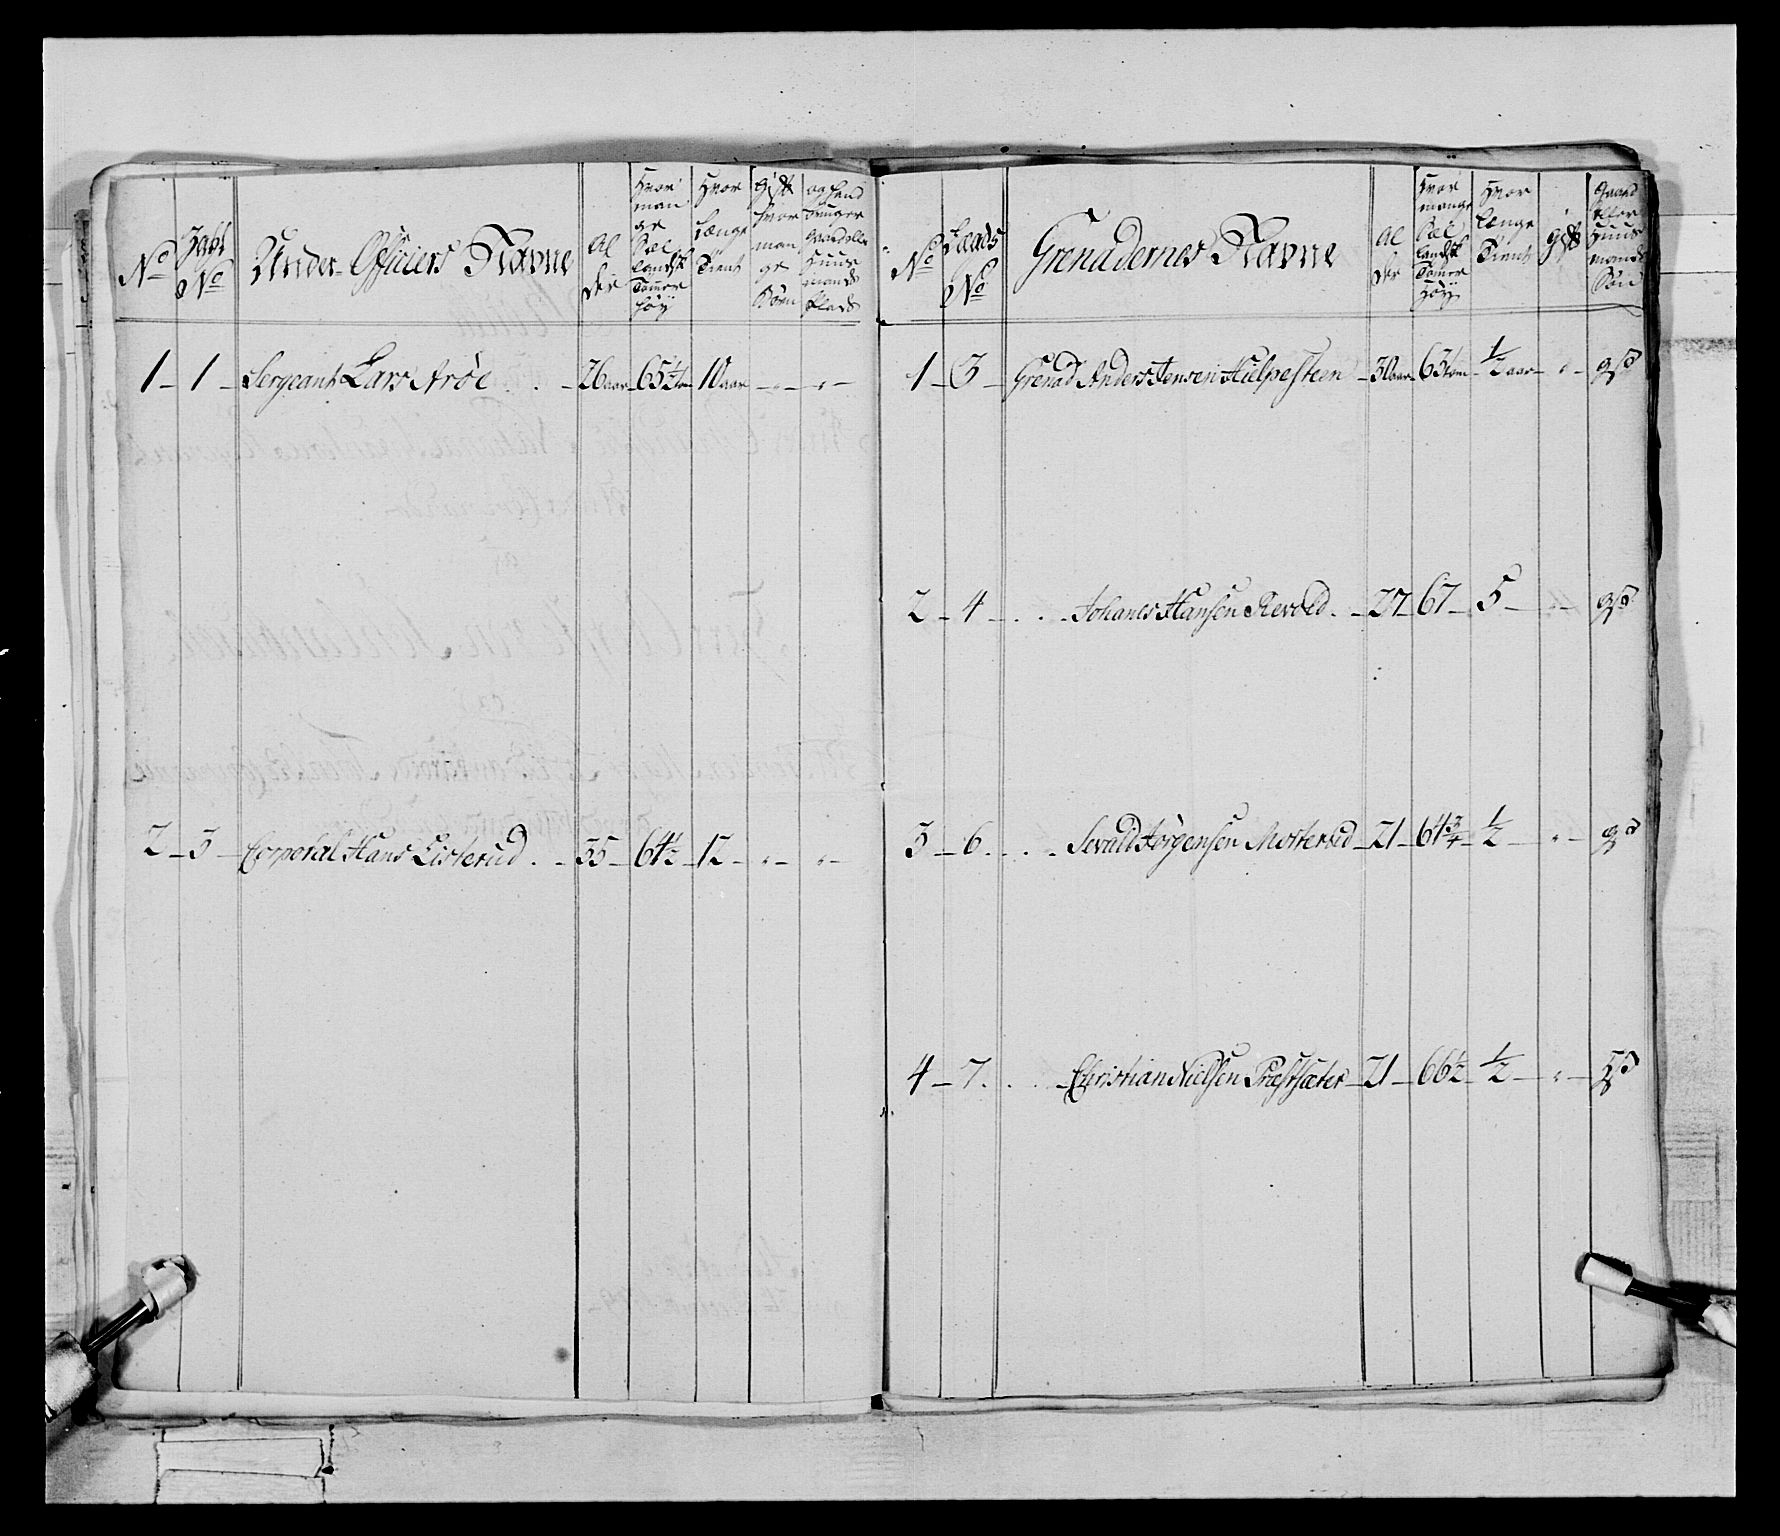 No
No
Under Officiers Navne
Al
der
Hvor
man
ge
Sæl
landsk
Tomer
høy
Hvor
Længe
Tient
Gift
hvor
man
ge
Børn
1 1 Sergeant Lars Arøe 26 aar 65½ tom 10 aar
2 3 Corporal Hans Listerud 35 64½ 12
No
Laads
No
Grenadernes Navne
Al
der
Hvor
mange
Sæl
landsk
Tomer
høy
Hvor
Længe
Tient
gift
Gaard
eller
Huus
mands
Søn
1 3 Grenad Anders Jensen Hielpesteen 30 aar 63 tom ½ aar gs
2 4 Johanes Hansen Revold 27 67 5 gs
3 6 Sevald Jørgensen Mosterud 21 64¾ ½ gs
4 7 Christian Nielsen Præstsæter 21 66½ ½ hs